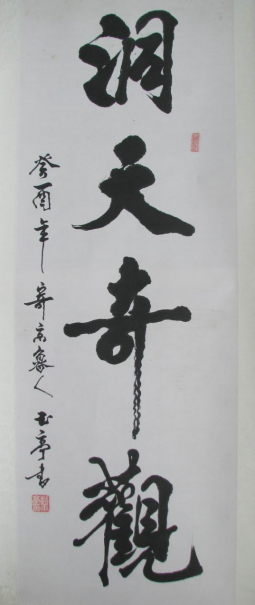 洞天奇觀
癸酉年寄京豫人玉亭書